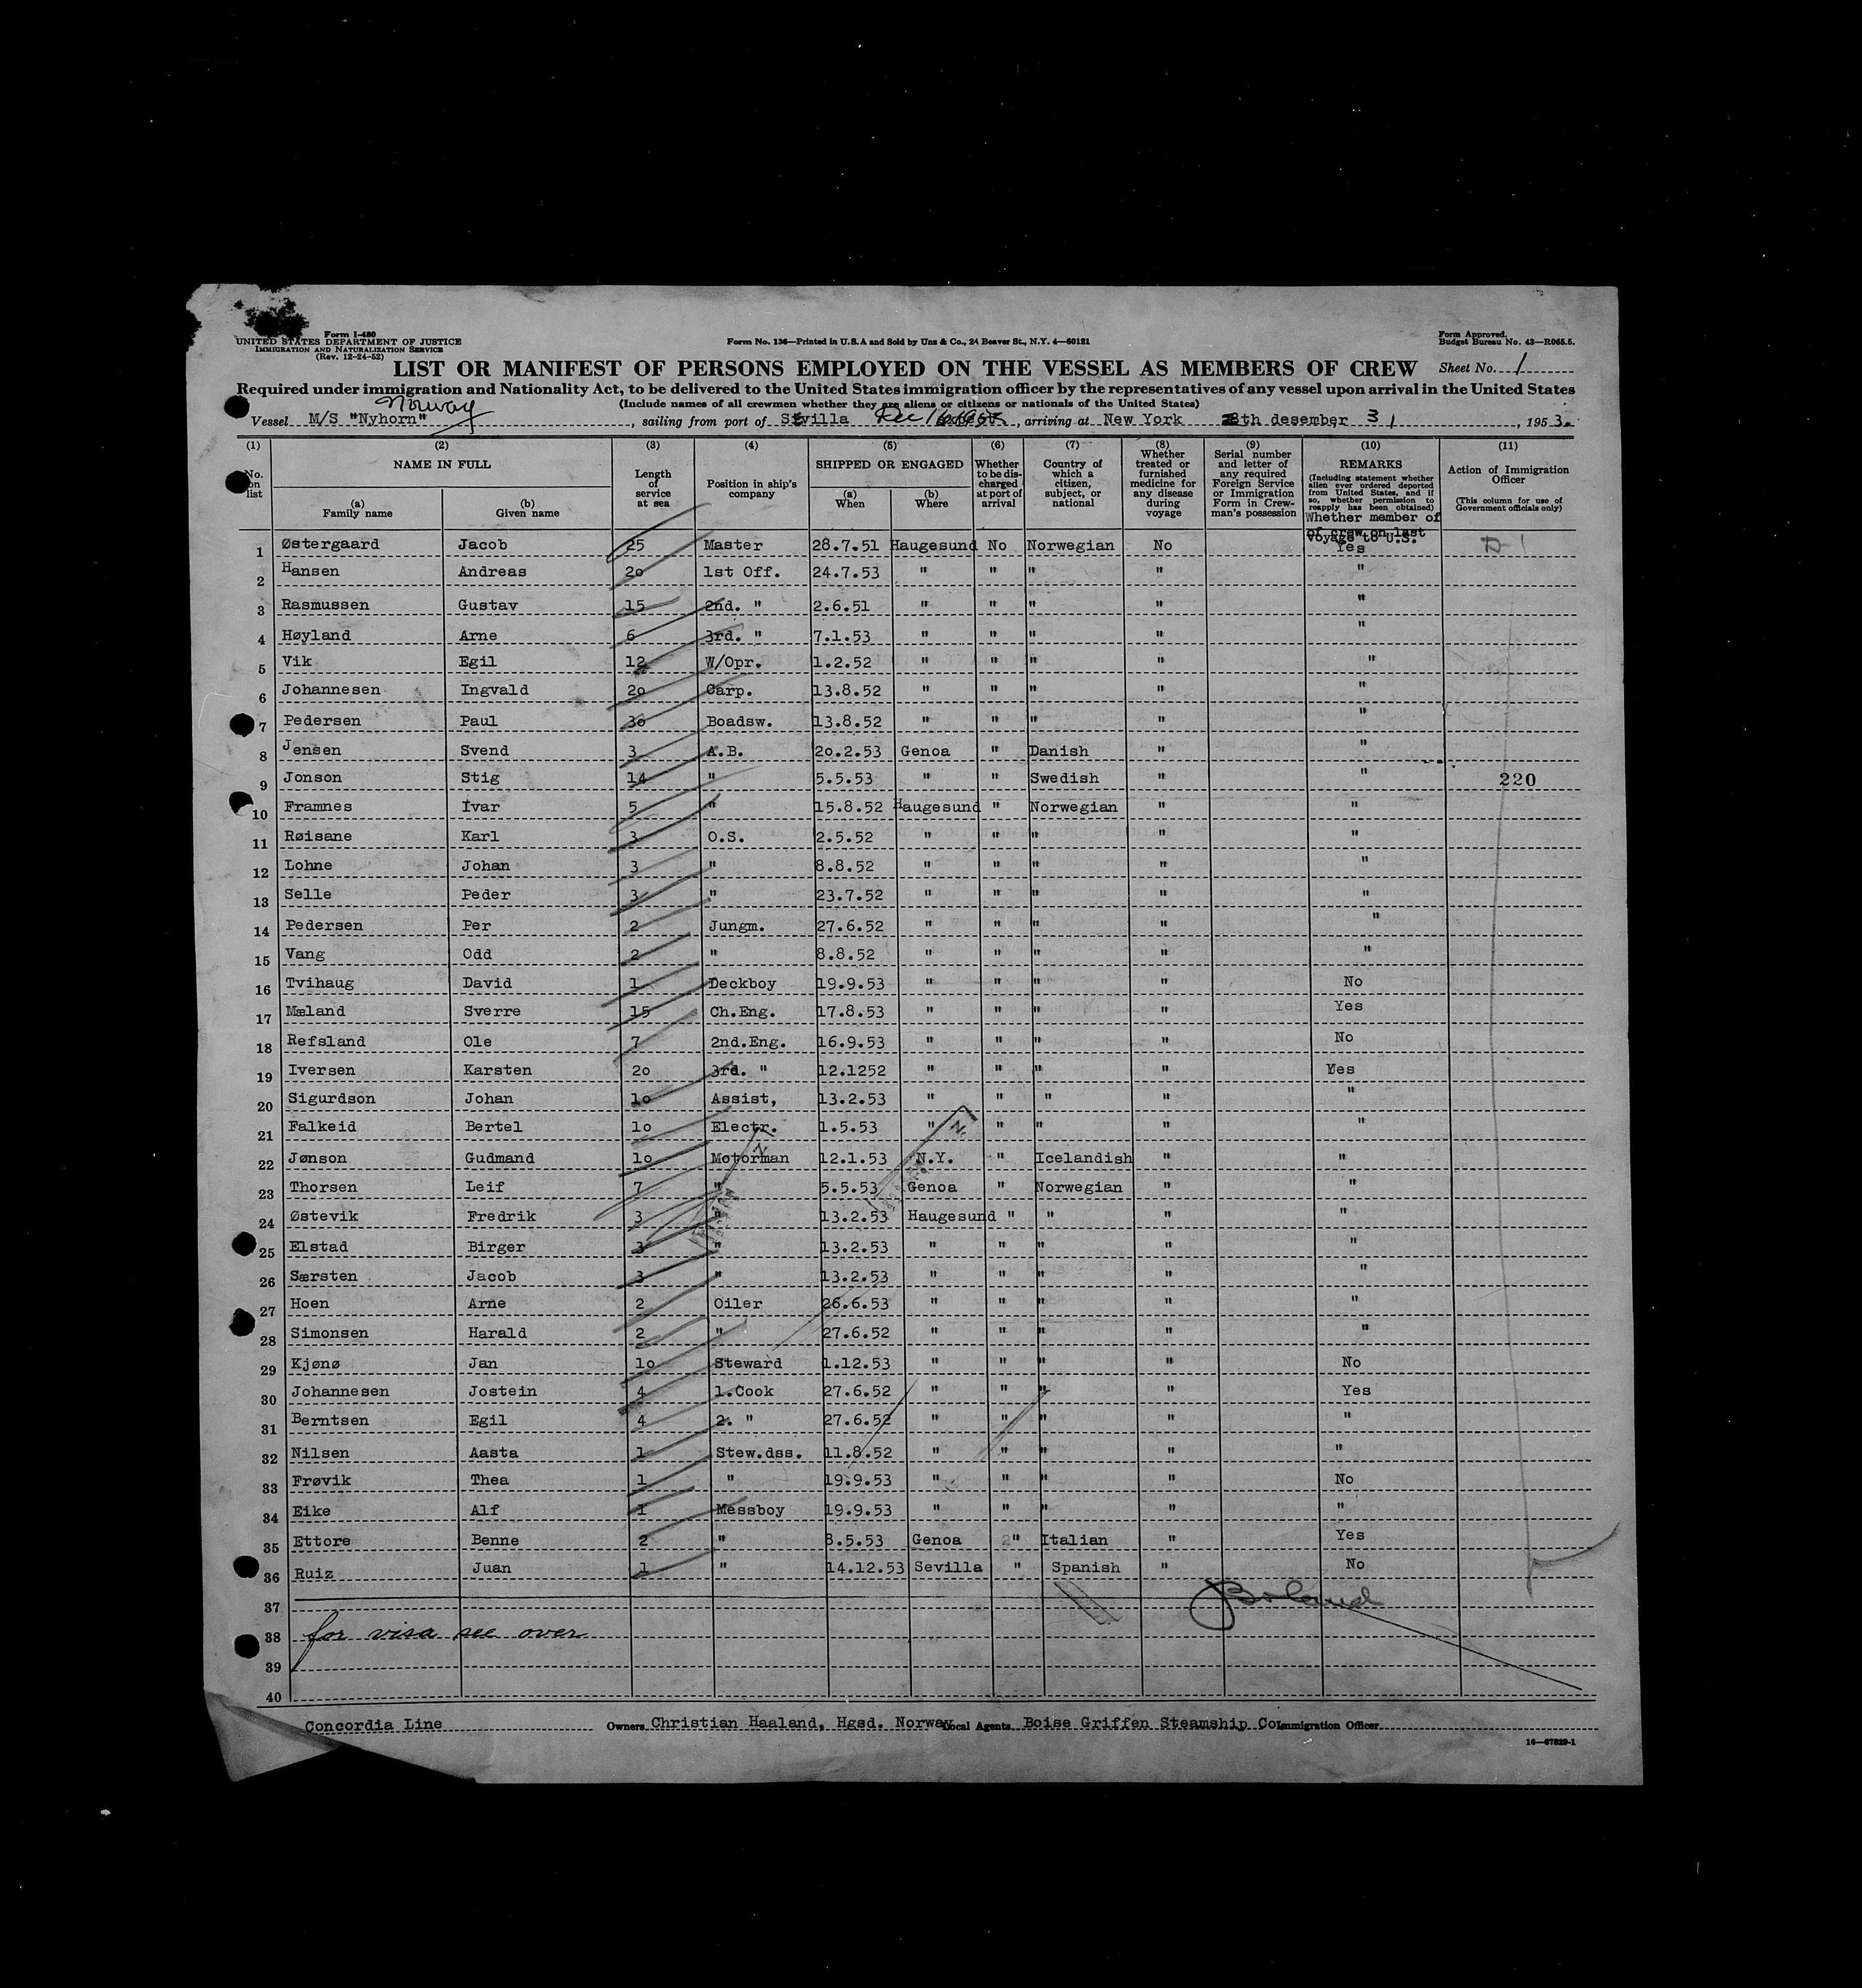 Form I-480
UNITED STATES DEPARTMENT OF JUSTICE
IMMIGRATION AND NATURALIZATION SERVICE
(Rev. 12-24-52)
Form No. 136—Printed in U.S.A and Sold by Unz & Co., 24 Beaver St., N.Y. 4—60121
Form Approved.
Budget Bureau No. 43—R065.5.
LIST OR MANIFEST OF PERSONS EMPLOYED ON THE VESSEL AS MEMBERS OF CREW Sheet No. 1
Required under immigration and Nationality Act, to be delivered to the United States immigration officer by the representatives of any vessel upon arrival in the United States
(Include names of all crewmen whether they are aliens or citizens or nationals of the United States)
Norway
Vessel M/S "Nyhorn", sailing from port of Sevilla Dec 16, arriving at New York th desember 31, 1953.
(1) (2) (3) (4) (5) (6) (7) (8) (9) (10) (11)
No. on list
NAME IN FULL
(a) Family name
(b) Given name
Length of service at sea
Position in ship's company
SHIPPED OR ENGAGED
(a) When
(b) Where
Whether to be discharged at port of arrival
Country of which a citizen, subject, or national
Whether treated or furnished medicine for any disease during voyage
Serial number and letter of any required Foreign Service or Immigration Form in Crewman's possession
REMARKS
(Including statement whether alien ever ordered deported from United States, and if so, whether permission to reapply has been obtained)
Whether member of
of crew on last
voyage to U.S.
Action of Immigration Officer
(This column for use of Government officials only)
1 Østergaard Jacob 25 Master 28.7.51 Haugesund No Norwegian No Yes
2 Hansen Andreas 20 1st Off. 24.7.53 " " " " "
3 Rasmussen Gustav 15 2nd. " 2.6.51 " " " " "
4 Høyland Arne 6 3rd. " 7.1.53 " " " " "
5 Vik Egil 12 W/Opr. 1.2.52 " " " " "
6 Johannesen Ingvald 20 Carp. 13.8.52 " " " " "
7 Pedersen Paul 30 Boadsw. 13.8.52 " " " " "
8 Jensen Svend 3 A.B. 20.2.53 Genoa " Danish " "
9 Jonson Stig 14 " 5.5.53 " " Swedish " " 220
10 Framnes Ivar 5 " 15.8.52 Haugesund " Norwegian " "
11 Røisane Karl 3 O.S. 2.5.52 " " " " "
12 Lohne Johan 3 " 8.8.52 " " " " "
13 Selle Peder 3 " 23.7.52 " " " " "
14 Pedersen Per 2 Jungm. 27.6.52 " " " " "
15 Vang Odd 2 " 8.8.52 " " " " "
16 Tvihaug David 1 Deckboy 19.9.53 " " " " No
17 Mæland Sverre 15 Ch.Eng. 17.8.53 " " " " Yes
18 Refsland Ole 7 2nd.Eng. 16.9.53 " " " " No
19 Iversen Karsten 20 3rd. " 12.1252 " " " " Yes
20 Sigurdson Johan 10 Assist, 13.2.53 " " " " "
21 Falkeid Bertel 10 Electr. 1.5.53 " " " " "
22 Jønson Gudmand 10 Motorman 12.1.53 N.Y. " Icelandish " "
23 Thorsen Leif 7 " 5.5.53 Genoa " Norwegian " "
24 Østevik Fredrik 3 " 13.2.53 Haugesund " " " "
25 Elstad Birger 3 " 13.2.53 " " " " "
26 Særsten Jacob 3 " 13.2.53 " " " " "
27 Hoen Arne 2 Oiler 26.6.53 " " " " "
28 Simonsen Harald 2 " 27.6.52 " " " " "
29 Kjønø Jan 10 Steward 1.12.53 " " " " No
30 Johannesen Jostein 4 1.Cook 27.6.52 " " " " Yes
31 Berntsen Egil 4 2. " 27.6.52 " " " " "
32 Nilsen Aasta 1 Stew.dss. 11.8.52 " " " " "
33 Frøvik Thea 1 " 19.9.53 " " " " No
34 Eike Alf 1 Messboy 19.9.53 " " " " "
35 Ettore Benne 2 " 8.5.53 Genoa " Italian " Yes
36 Ruiz Juan 1 " 14.12.53 Sevilla " Spanish " No
37
38 for visa see over
39
40
Concordia Line Owners Christian Haaland, Hgsd. Norway Local Agents Boise Griffen Steamship Co. Immigration Officer
16—67829-1